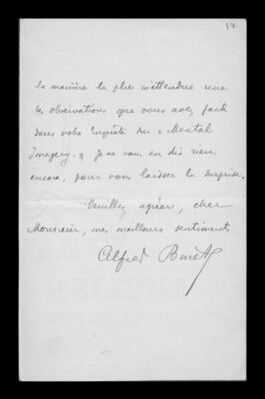 57
la manière la plus inattendue une
des observations que vous avez faite
dans votre Enquête sur « Mental
Imagery. » Je ne vous en dis rien
encore, pour vous laisser la surprise.
Veuillez agréer, cher
Monsieur, mes meilleurs sentiments
Alfred Binet